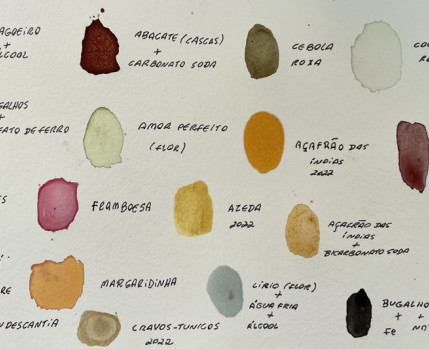 AGOEIRO
+
LCOOL
ABACATE (CASCAS)
+
CARBONATO SODA
CEBOLA
ROXA
GALHOS
+
ATO DE FERRO
AMOR PERFEITO
(FLOR)
AÇAFRÃO DAS
ÍNDIAS
2022
FRAMBOESA
AZEDA
2022
AÇAFRÃO DAS
ÍNDIAS
+
BICARBONATO SODA
RE
MARGARIDINHA
LÍRIO (FLOR)
+
ÁGUA FRIA
+
ÁLCOOL
BUGALHO
+ +
Fe
DESCANTIA
CRAVOS-TUNICOS
2022